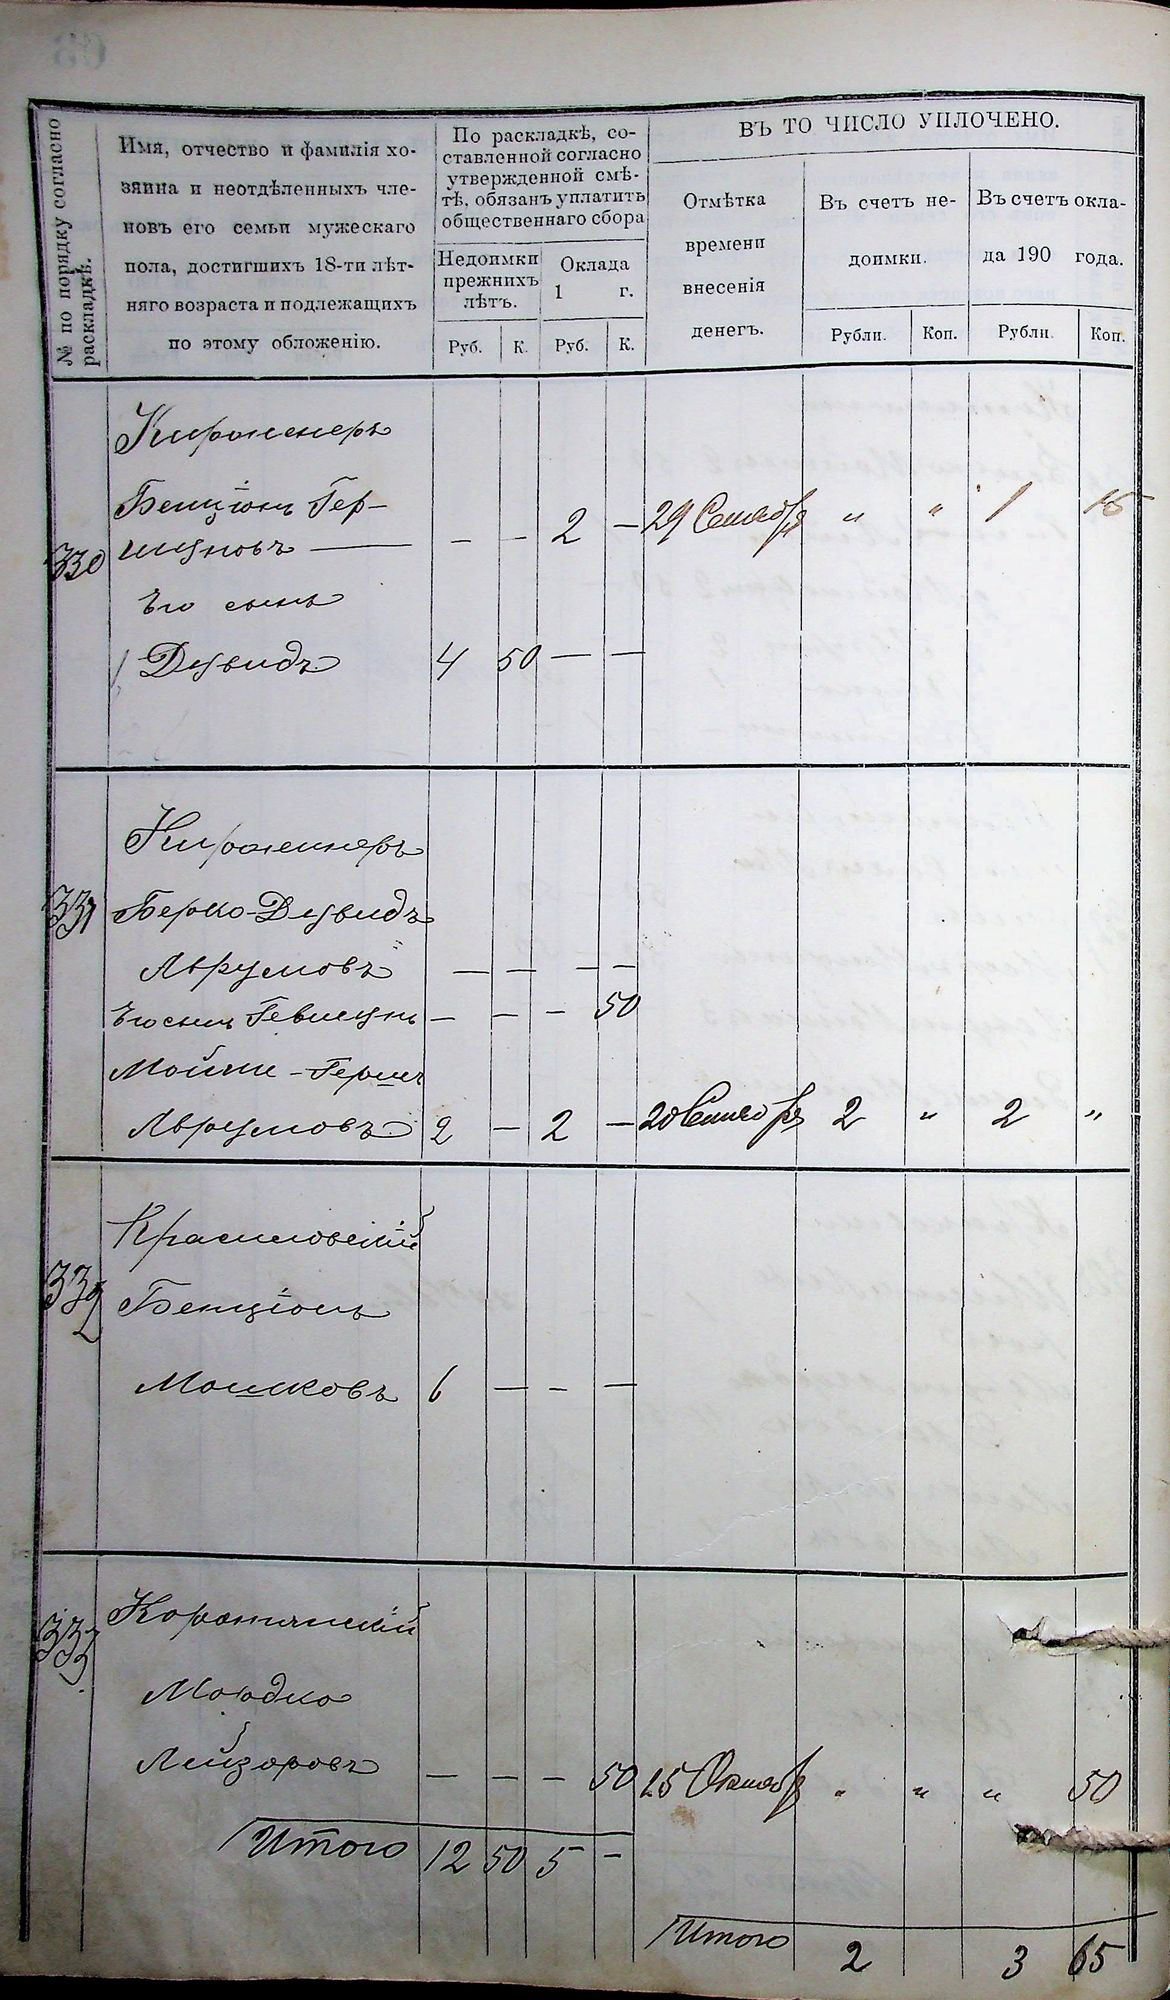 № по порядку согласно
раскладкѣ.
Имя, отчество и фамилія хо-
зяина и неотдѣленныхъ чле-
новъ его семьи мужескаго
пола, достигшихъ 18-ти лѣт-
няго возраста и подлежащихъ
по этому обложенію.
По раскладкѣ, со-
ставленной согласно
утвержденной смѣ-
тѣ, обязанъ уплатить
общественнаго сбора
Недоимки
прежнихъ
лѣтъ.
Оклада
1 г.
Руб. К. Руб. К.
ВЪ ТО ЧИСЛО УПЛОЧЕНО.
Отмѣтка
времени
внесенія
денегъ.
Въ счетъ не-
доимки.
Въ счетъ окла-
да 190 года.
Рубли. Коп. Рубли. Коп.
Киржнеръ
Бенціонъ Гер-
330 шуновъ — — — 2 — 29 Сентября „ „ 1 15
Его сынъ
Дувидъ 4 50 — —
Киржнеръ
331 Берко-Дувидъ
Аврумовъ — — — —
Его сынъ Гевшунъ — — — 50
Мойше-Гершъ
Аврумовъ 2 — 2 — 20 Сентября 2 „ 2 „
Красиловскій
332 Бенціонъ
Мошковъ 6 — — —
333
Мордко
Лейзоровъ — — — 50 15 Октября „ „ „ 50
Итого 12 50 5 —
Итого 2 3 65